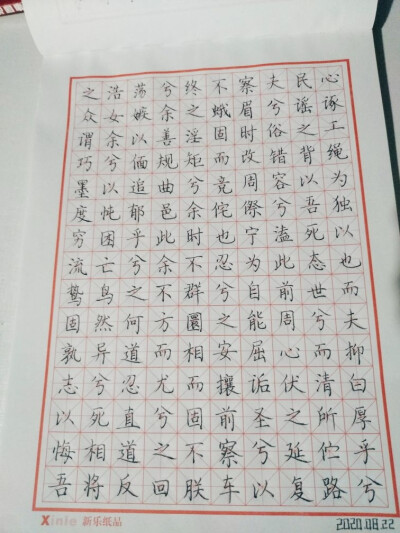 之浩荡兮终不察夫民心
众女嫉余之蛾眉兮谣诼
谓余以善淫固时俗之工
巧兮偭规矩而改错背绳
墨以追曲兮竞周容以为
度忳郁邑余侘傺兮吾独
穷困乎此时也宁溘死以
流亡兮余不忍为此态也
鸷鸟之不群兮自前世而
固然何方圜之能周兮夫
孰异道而相安屈心而抑
志兮忍尤而攘诟伏清白
以死直兮固前圣之所厚
悔相道之不察兮延伫乎
吾将反回朕车以复路兮
Xinle 新乐纸品
2020.08.22